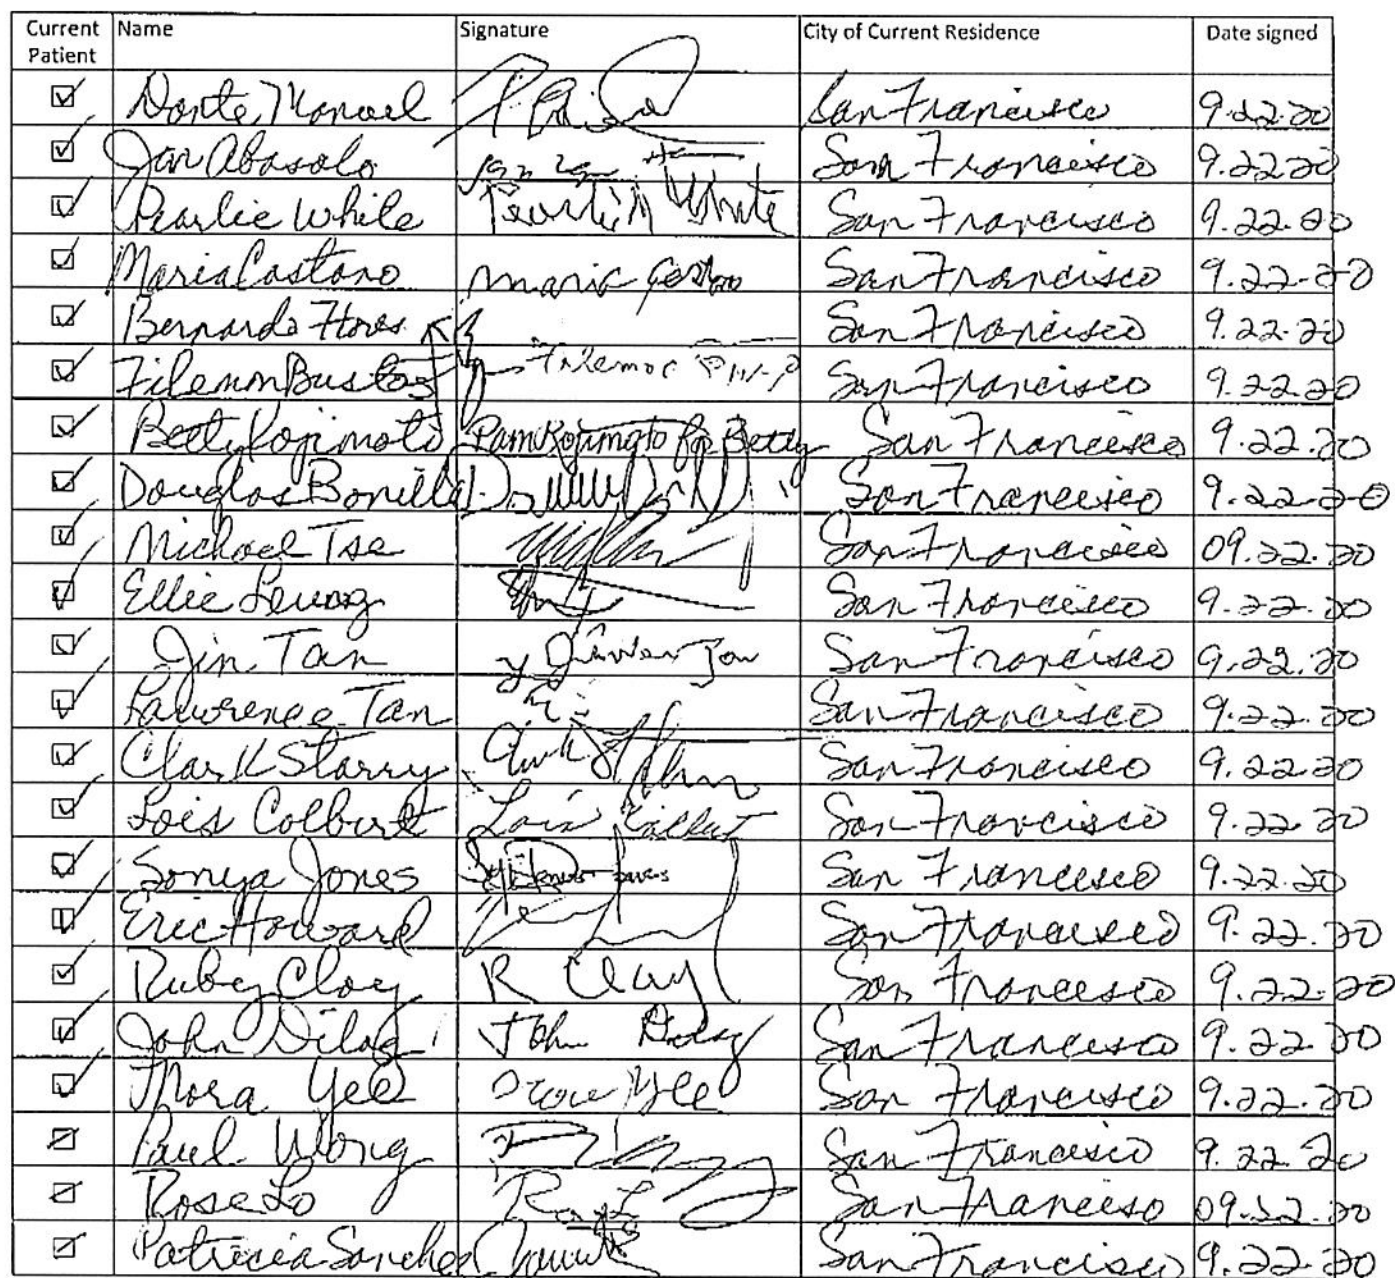 Current Patient Name Signature City of Current Residence Date signed
Dante Manoel San Francisco 9.22.20
Jan Abasolo San Francisco 9.22.20
Pearlie White Pearlie White San Francisco 9.22.20
Maria Castano maria San Francisco 9.22.20
Bernardo Flores San Francisco 9.22.20
Filemon Bustos San Francisco 9.22.20
Betty Kojimoto Pam Kojimoto for Betty San Francisco 9.22.20
Douglas Bonilla San Francisco 9.22.20
Michael Tse San Francisco 09.22.20
Ellie Leung San Francisco 9.22.20
Jin Tan San Francisco 9.22.20
Lawrence Tan San Francisco 9.22.20
Clark Starry San Francisco 9.22.20
Lois Colbert Lois Colbert San Francisco 9.22.20
Sonya Jones San Francisco 9.22.20
Eric Howard San Francisco 9.22.20
Ruby Clay R Clay San Francisco 9.22.20
John Dilag John San Francisco 9.22.20
Yee Yee San Francisco 9.22.20
Paul Wong San Francisco 9.22.20
Rose Lo San Francisco 09.22.20
Patricia Sanchez San Francisco 9.22.20